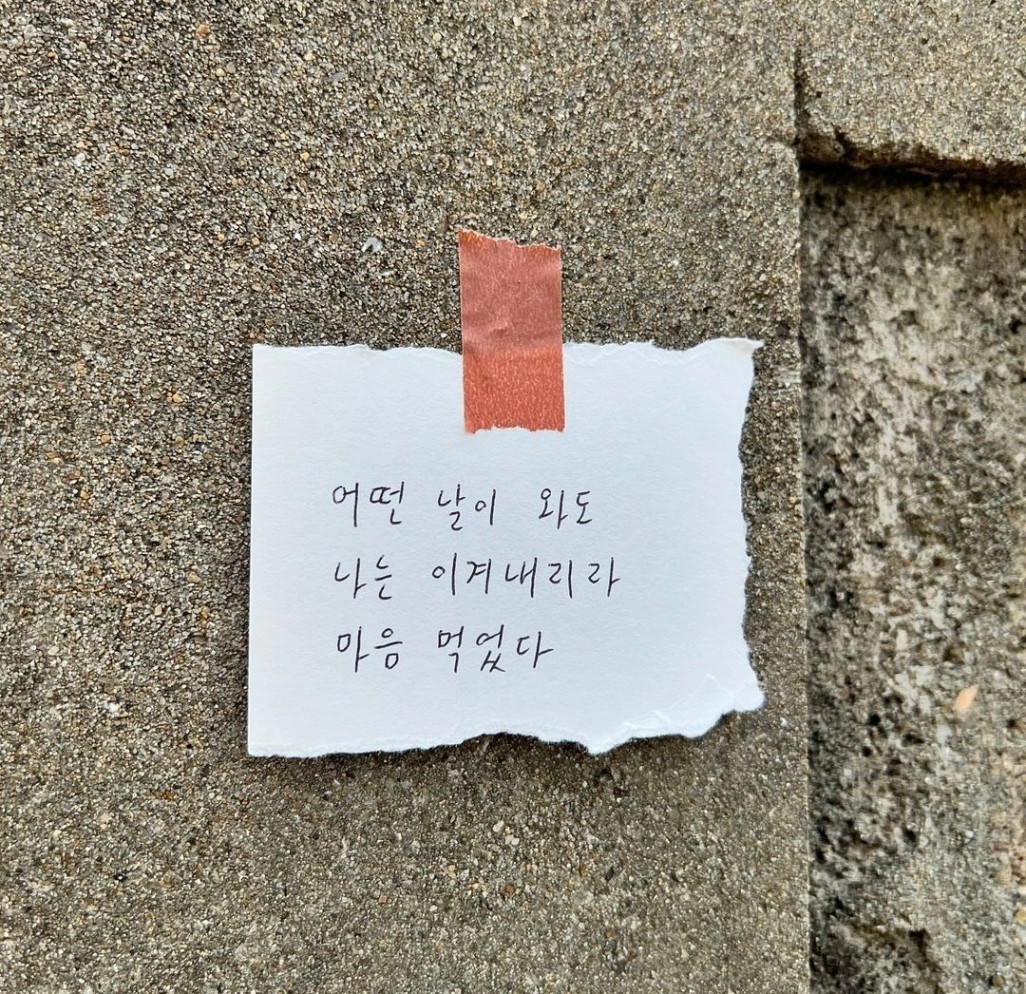 어떤 날이 와도
나는 이겨내리라
마음 먹었다